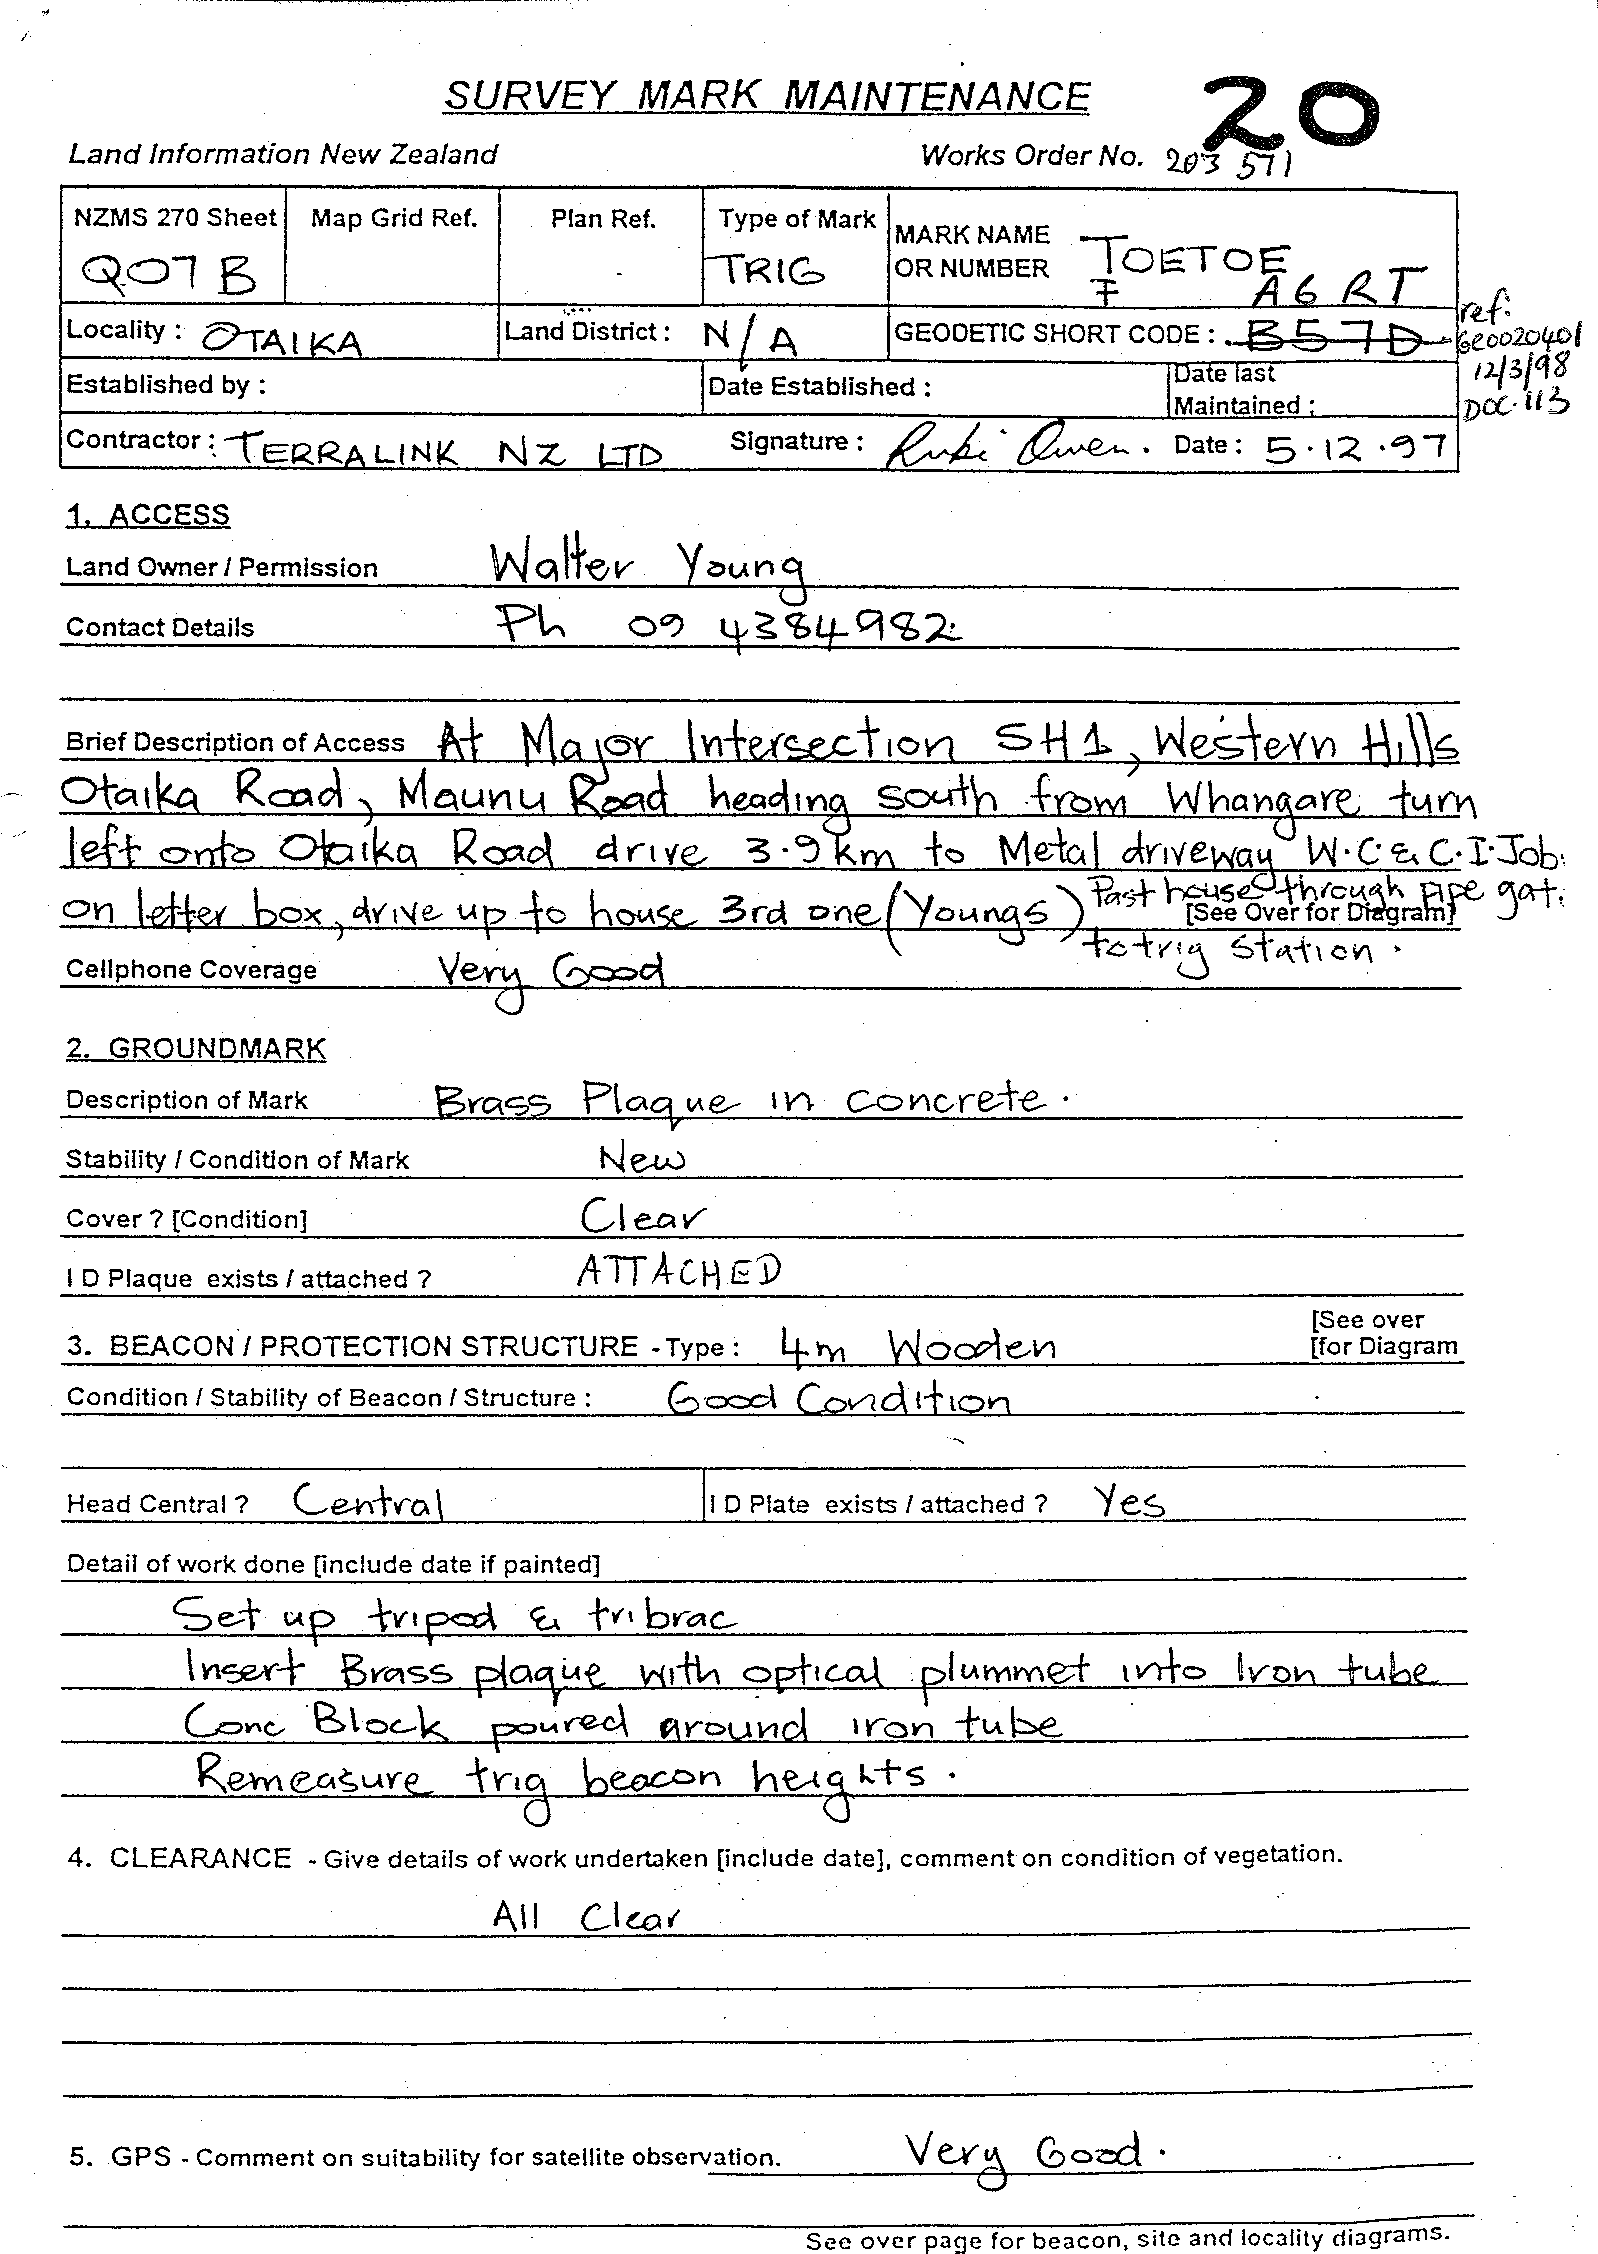 SURVEY MARK MAINTENANCE 20
Land Information New Zealand Works Order No. 203 571
NZMS 270 Sheet Map Grid Ref. Plan Ref. Type of Mark MARK NAME OR NUMBER TOETOE
Q07 B TRIG
A6RT
Locality : OTAIKA Land District : N/A GEODETIC SHORT CODE : B57D
ref:
Geo020401
12/3/98
DOC. 113
Established by : Date Established : Date last Maintained :
Contractor : TERRALINK NZ LTD Signature : Ruki Owen. Date : 5.12.97
1. ACCESS
Land Owner / Permission Walter Young
Contact Details Ph 09 4384982
Brief Description of Access At Major Intersection SH1, Western Hills
Otaika Road, Maunu Road heading south from Whangare turn
left onto Otaika Road drive 3.9km to Metal driveway W.C & C.I.Job.
on letter box, drive up to house 3rd one (Youngs) Past house through pipe gat.
[See Over for Diagram]
to trig station.
Cellphone Coverage Very Good
2. GROUNDMARK
Description of Mark Brass Plaque in concrete.
Stability / Condition of Mark New
Cover ? [Condition] Clear
I D Plaque exists / attached ? ATTACHED
3. BEACON / PROTECTION STRUCTURE - Type : 4m Wooden [See over
[for Diagram
Condition / Stability of Beacon / Structure : Good Condition
Head Central ? Central I D Plate exists / attached ? Yes
Detail of work done [include date if painted]
Set up tripod & tribrac
Insert Brass plaque with optical plummet into Iron tube
Conc Block poured around iron tube
Remeasure trig beacon heights.
4. CLEARANCE - Give details of work undertaken [include date], comment on condition of vegetation.
All Clear
5. GPS - Comment on suitability for satellite observation. Very Good.
See over page for beacon, site and locality diagrams.